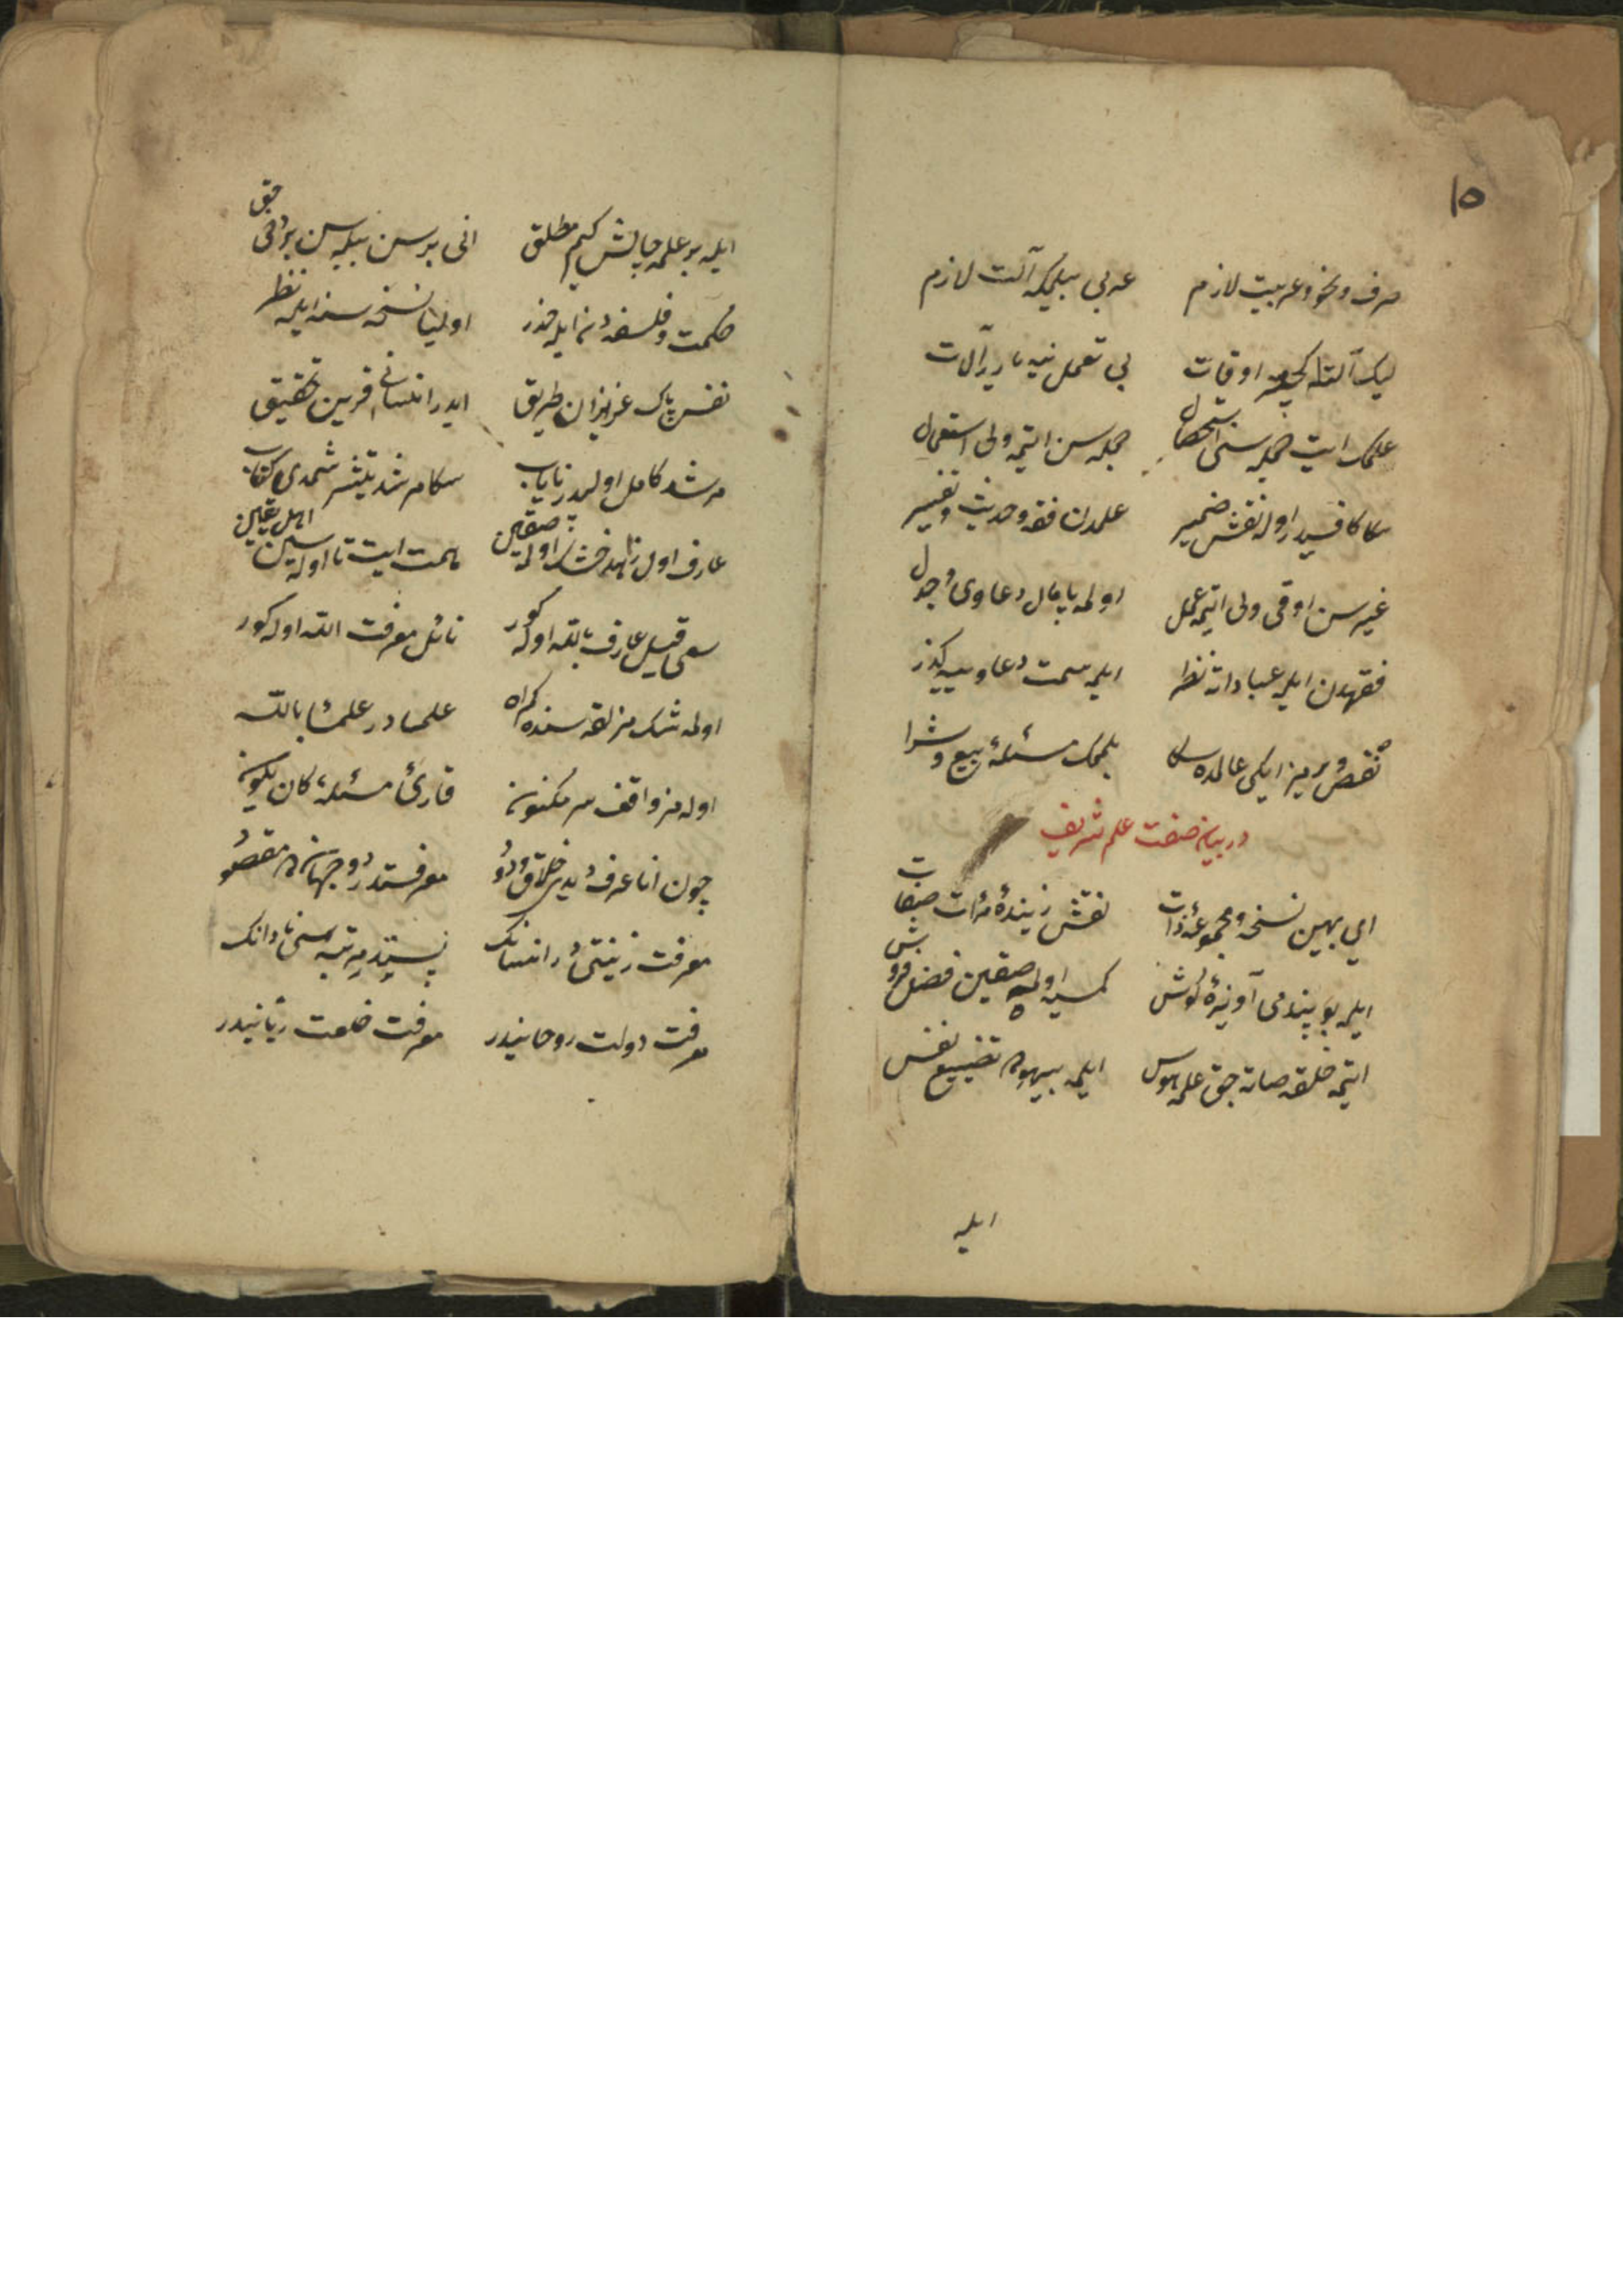 ١٥
صرف و نحو و عربیت لازم عربی بیلمکه آلت لازم
لیک آلتله کچورمه اوقات بی تعمل نیه یارر آلات
علمک ایت جمله سنی استحصال جمله سن ایتمه ولی استعمال
سکا کافیدر اوله نقش ضمیر علمدن فقه و حدیث و تفسیر
غیرسن اوقی ولی ایتمه عمل اولمه پامال دعاوی و جدل
فقهدن ایله عباداته نظر ایلمه سمت دعاوییه گذر
نقص ویرمز ایکی عالمده سکا بلمک مسئلهٔ بیع و شرا
در بیان صفت علم شریف
ای بهین نسخه و مجموعهٔ ذات نقش زیبندهٔ مرآت صفات
ایله بو پندمی آویزهٔ گوش کمسیه اولمه صقین فضل فروش
ایتمه خلقه صاته جق علمه هوس ایلمه بیهوده تضییع نفس
ایله
ایله بر علمه چالش کیم مطلق انی بر سن بیله سن بر دخی حق
حکمت و فلسفه دن ایله حذر اولیا نسخه سنه ایله نظر
نفس پاک عزیزان طریق ایدر انسانی قرین تحقیق
مرشد کامل اولیدر نایاب سکا مرشد یتیشر شمدی کتاب
عارف اول زاهد خشک اولمه صقین همت ایت تا اوله سین اهل یقین
سعی قیل عارف بالله اوله گور نائل معرفت الله اوله گور
اولمه شک مزلقه سنده گمراه علما در علما بالله
اوله مز واقف سر مکنون قارئ مسئلهٔ کان یکون
چون انا عرف دیدی خلاق ودود معرفتدر دو جهانده مقصود
معرفت زینتی در انسانک پستدر مرتبه سی نادانک
معرفت دولت روحانیدر معرفت خلعت ربانیدر